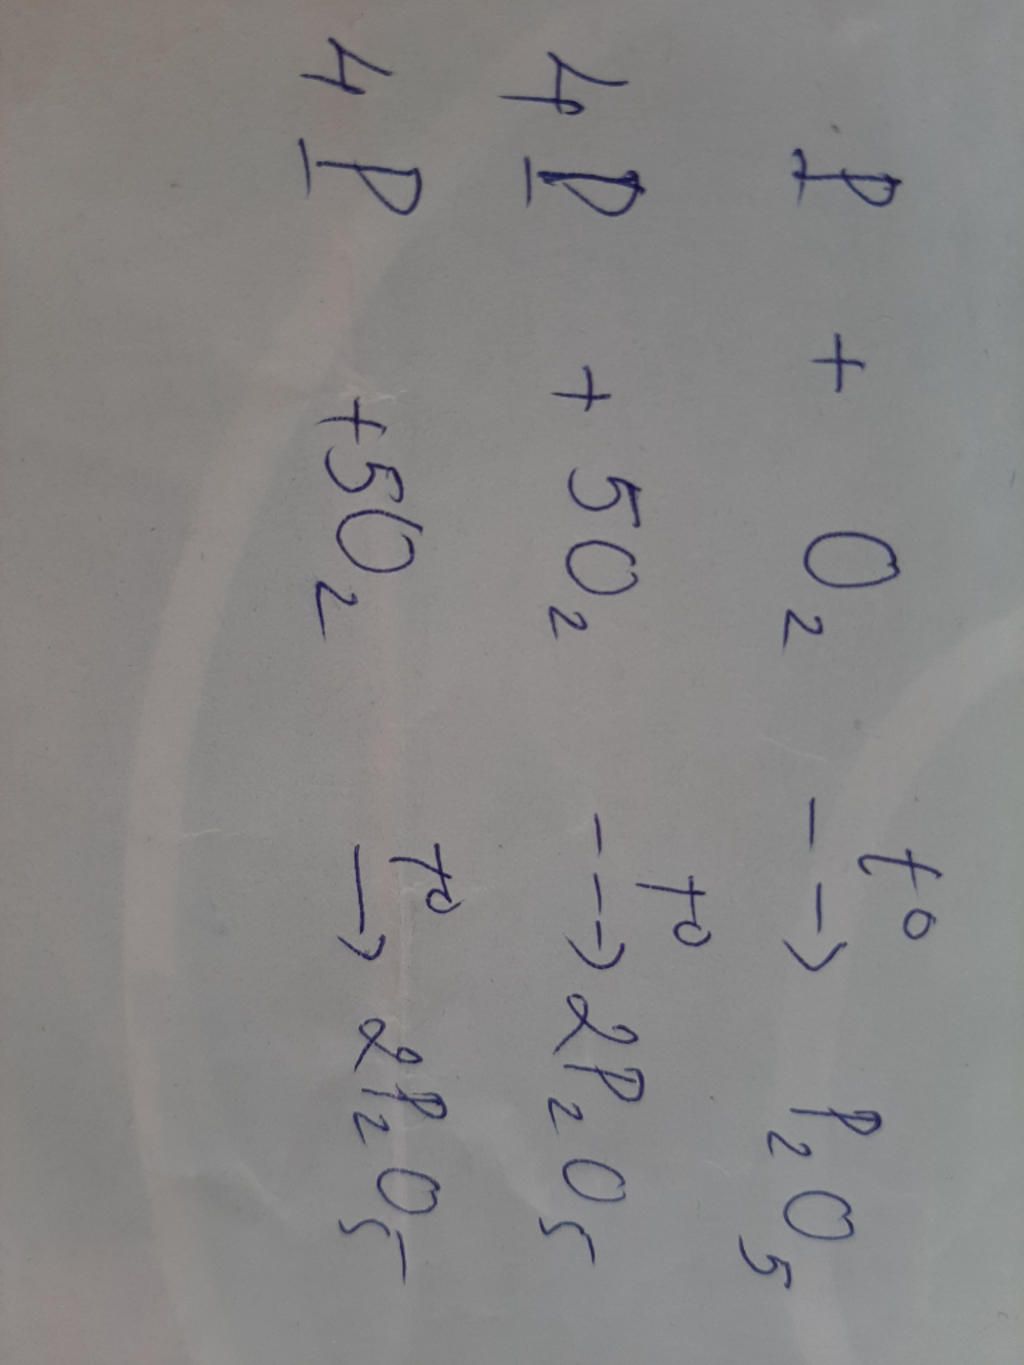 P + O₂ --→ t⁰ P₂O₅
4P + 5O₂ ---→ t⁰ 2P₂O₅
4P +5O₂ → t⁰ 2P₂O₅